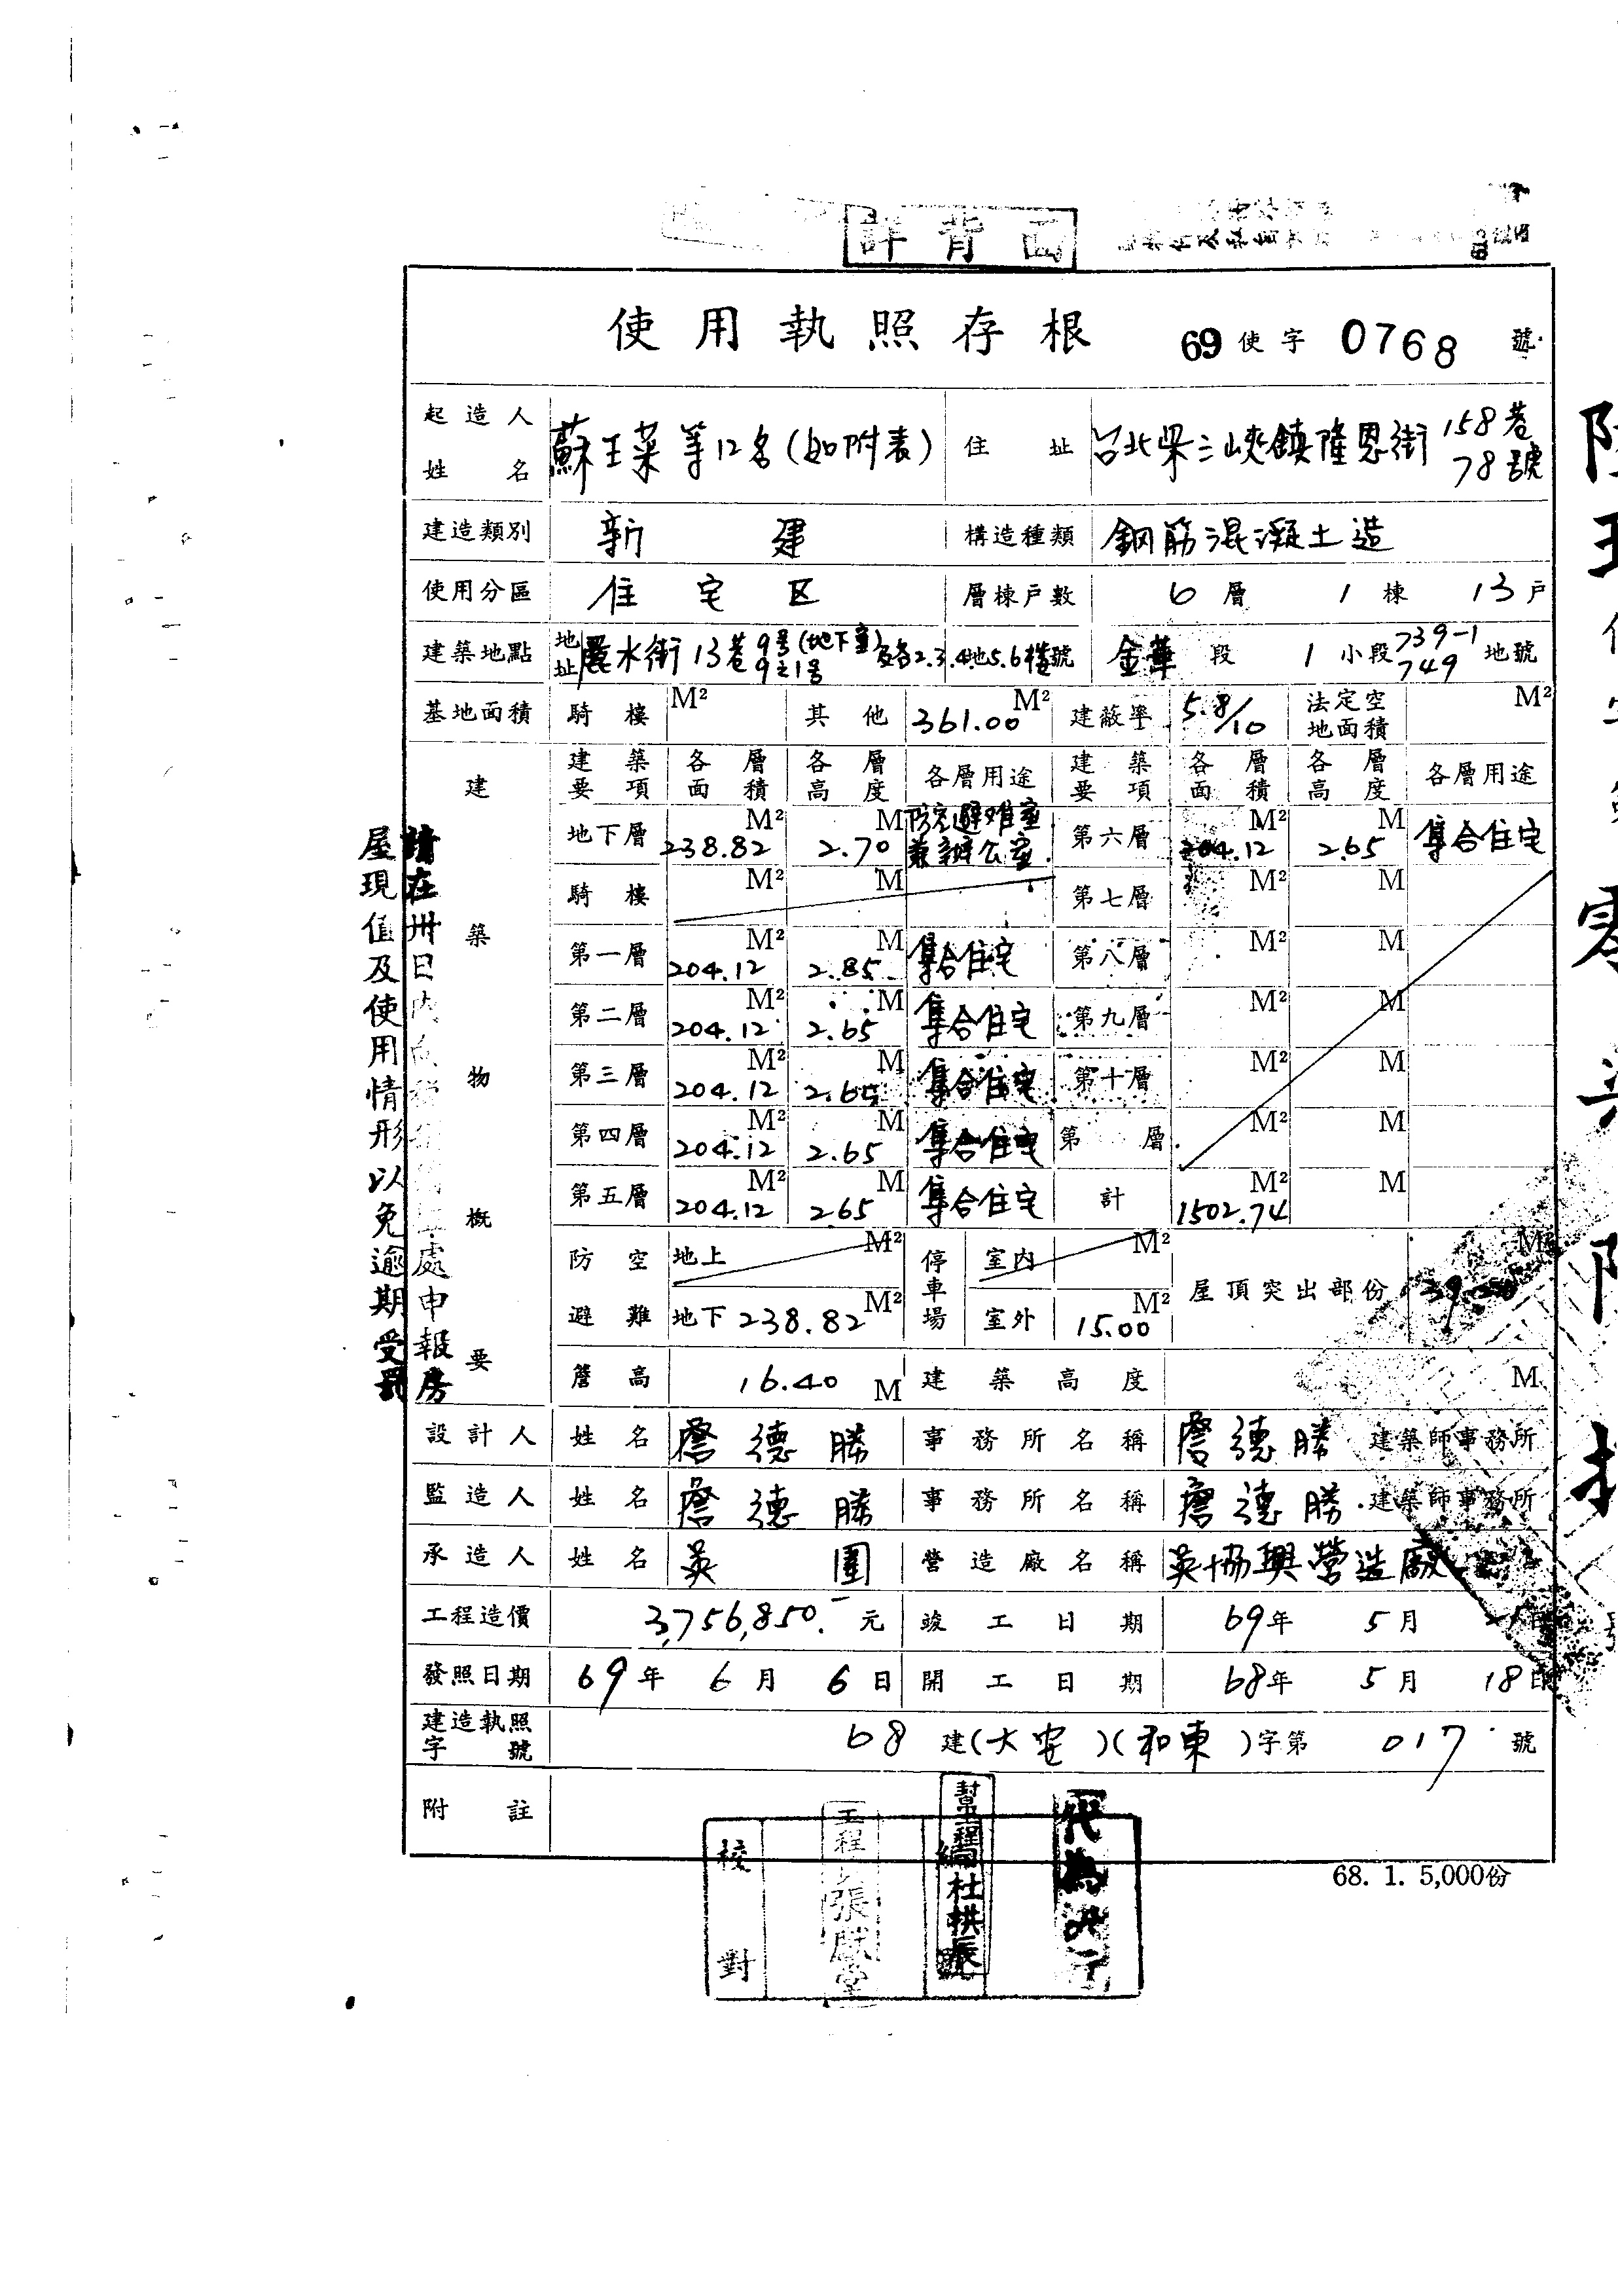 詳背面
使用執照存根 69使字0768號
起造人姓名 蘇王菜等12名(如附表) 住址 台北縣三峽鎮隆恩街158巷78號
建造類別 新建 構造種類 鋼筋混凝土造
使用分區 住宅区 層棟戶數 6層 1棟 13戶
建築地點 地址 麗水街13巷9号(地下室)9之1号及各2.3.4.5.6樓 地號 金華段 1小段 739-1 749 地號
基地面積 騎樓 M² 其他 361.00 M² 建蔽率 5.8/10 法定空地面積 M²
建築物概要
建築要項 各層面積 各層高度 各層用途 建築要項 各層面積 各層高度 各層用途
地下層 238.82 M² 2.70 M 防空避难室兼辦公室 第六層 204.12 M² 2.65 M 集合住宅
騎樓 M² M 第七層 M² M
第一層 204.12 M² 2.85 M 集合住宅 第八層 M² M
第二層 204.12 M² 2.65 M 集合住宅 第九層 M² M
第三層 204.12 M² 2.65 M 集合住宅 第十層 M² M
第四層 204.12 M² 2.65 M 集合住宅 第 層 M² M
第五層 204.12 M² 2.65 M 集合住宅 計 1502.74 M² M
防空避難 地上 M² 停車場 室內 M² 屋頂突出部份 M²
地下 238.82 M² 室外 15.00 M²
簷高 16.40 M 建築高度 M
設計人 姓名 詹德勝 事務所名稱 詹德勝 建築師事務所
監造人 姓名 詹德勝 事務所名稱 詹德勝 建築師事務所
承造人 姓名 吳圍 營造廠名稱 吳協興營造廠
工程造價 3,756,850.- 元 竣工日期 69年 5月 日
發照日期 69年 6月 6日 開工日期 68年 5月 18日
建造執照字號 68建(大安)(和東)字第017號
附註
68. 1. 5,000份
校對
工程 張
幫工程 杜拱辰
請在卅日內向 處申報房
屋現值及使用情形以免逾期受罰